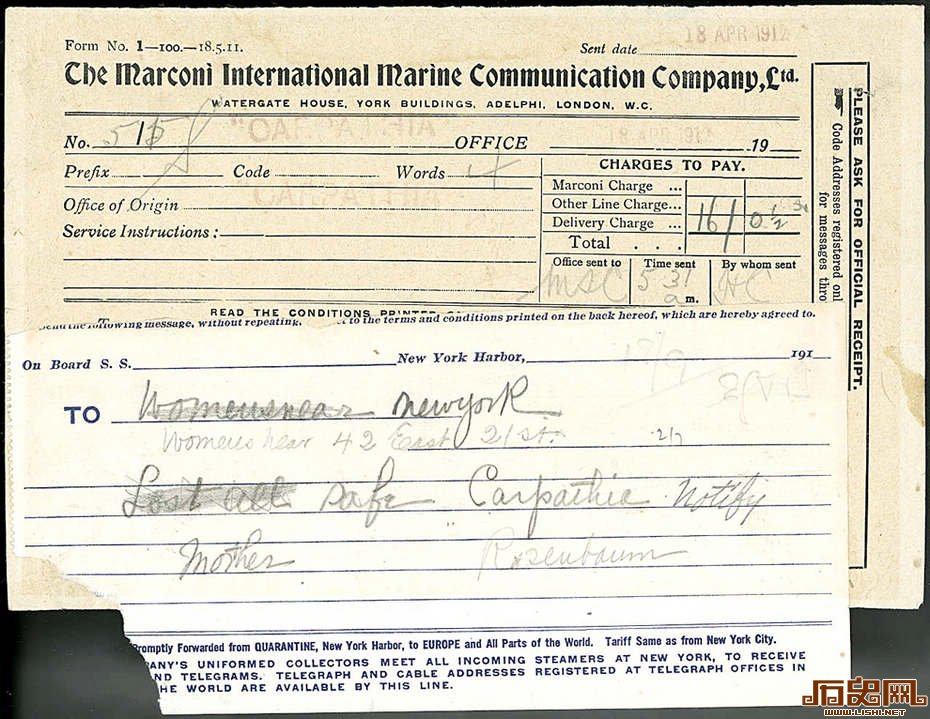 18 APR 1912
Form No. 1—100.—18.5.11.
Sent date
The Marconi International Marine Communication Company, Ltd.
WATERGATE HOUSE, YORK BUILDINGS, ADELPHI, LONDON, W.C.
No. 515 OFFICE 19
Prefix Code Words 4
Office of Origin
Service Instructions:
CHARGES TO PAY.
Marconi Charge ...
Other Line Charge...
Delivery Charge ...
Total . . .
16/ 0 ½
Office sent to Time sent By whom sent
MSC 5 31 a m. HC
PLEASE ASK FOR OFFICIAL RECEIPT.
Code Addresses registered onl
for messages thro
READ THE CONDITIONS PRINTED
send the following message, without repeating, to the terms and conditions printed on the back hereof, which are hereby agreed to.
On Board S. S. New York Harbor, 191
TO Womenswear newyork
Womenswear 42 East 21 st.
Lost all safe Carpathia Notify
Mother Rosenbaum
Promptly Forwarded from QUARANTINE, New York Harbor, to EUROPE and All Parts of the World. Tariff Same as from New York City.
PANY'S UNIFORMED COLLECTORS MEET ALL INCOMING STEAMERS AT NEW YORK, TO RECEIVE
ND TELEGRAMS. TELEGRAPH AND CABLE ADDRESSES REGISTERED AT TELEGRAPH OFFICES IN
THE WORLD ARE AVAILABLE BY THIS LINE.
历史网
WWW.LISHI.NET